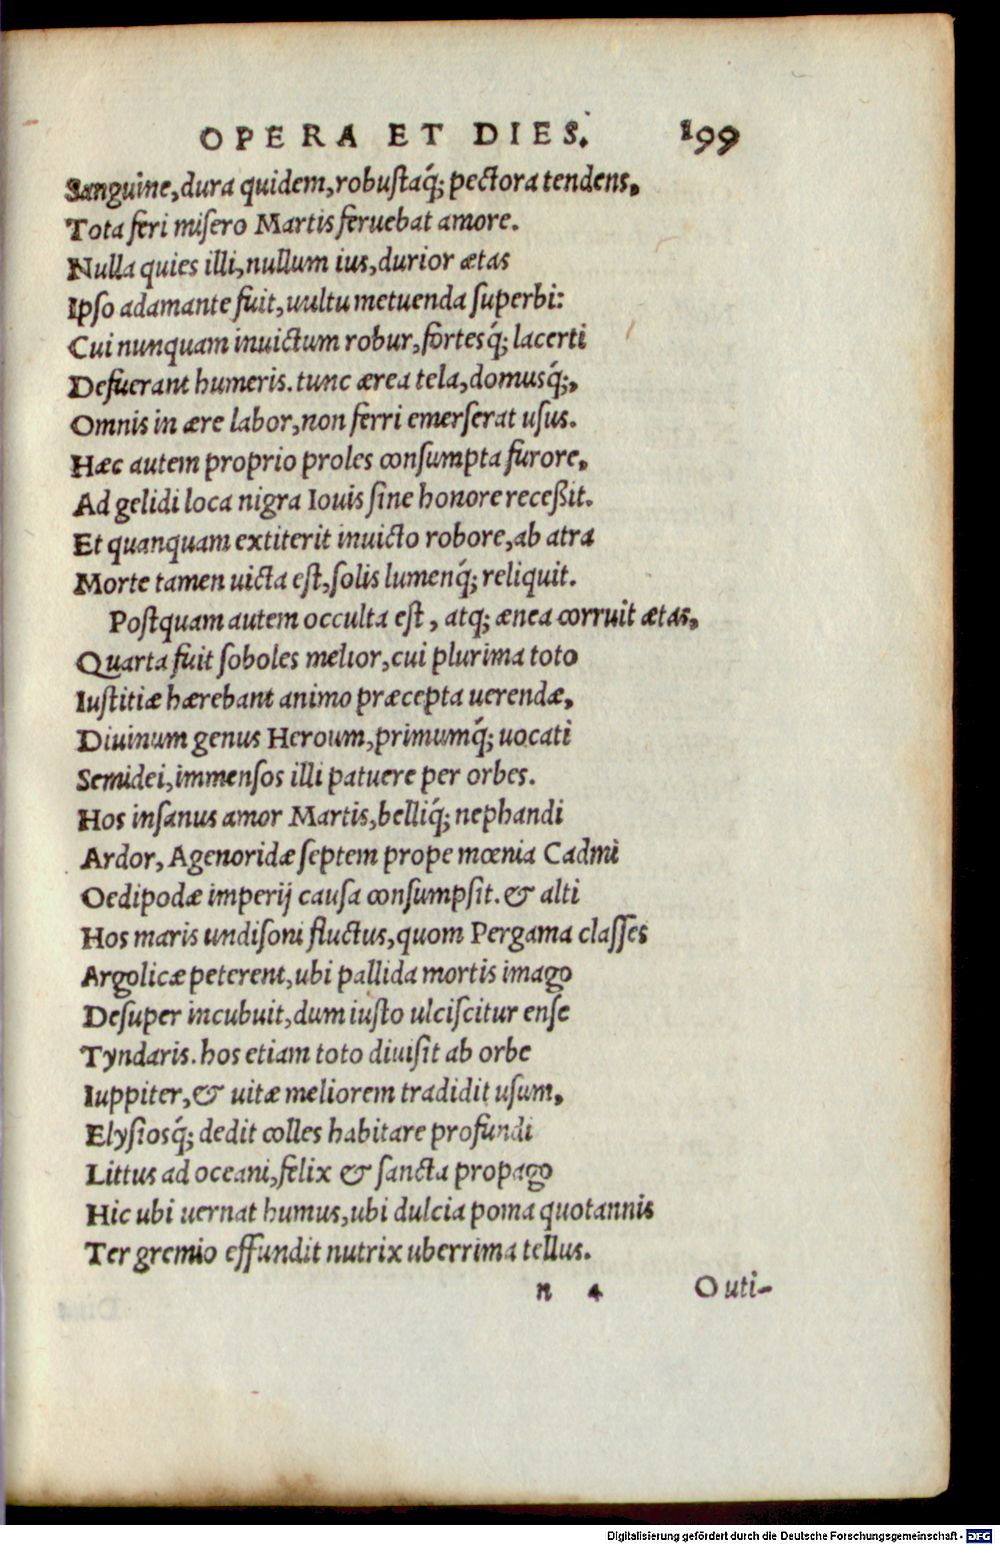 OPERA ET DIES. 199
Sanguine, dura quidem, robustaq́; pectora tendens,
Tota feri misero Martis feruebat amore.
Nulla quies illi, nullum ius, durior ætas
Ipso adamante fuit, uultu metuenda superbi:
Cui nunquam inuictum robur, fortesq́; lacerti
Defuerant humeris. tunc ærea tela, domusq́;,
Omnis in ære labor, non ferri emerserat usus.
Hæc autem proprio proles consumpta furore,
Ad gelidi loca nigra Iouis sine honore receßit.
Et quanquam extiterit inuicto robore, ab atra
Morte tamen uicta est, solis lumenq́; reliquit.
Postquam autem occulta est, atq; ænea corruit ætas,
Quarta fuit soboles melior, cui plurima toto
Iustitiæ hærebant animo præcepta uerendæ,
Diuinum genus Heroum, primumq́; uocati
Semidei, immensos illi patuere per orbes.
Hos insanus amor Martis, belliq́; nephandi
Ardor, Agenoridæ septem prope mœnia Cadmi
Oedipodæ imperij causa consumpsit. & alti
Hos maris undisoni fluctus, quom Pergama classes
Argolicæ peterent, ubi pallida mortis imago
Desuper incubuit, dum iusto ulciscitur ense
Tyndaris. hos etiam toto diuisit ab orbe
Iuppiter, & uitæ meliorem tradidit usum,
Elysiosq́; dedit colles habitare profundi
Littus ad oceani, felix & sancta propago
Hic ubi uernat humus, ubi dulcia poma quotannis
Ter gremio effundit nutrix uberrima tellus.
n 4 O uti-
Digitalisierung gefördert durch die Deutsche Forschungsgemeinschaft - DFG